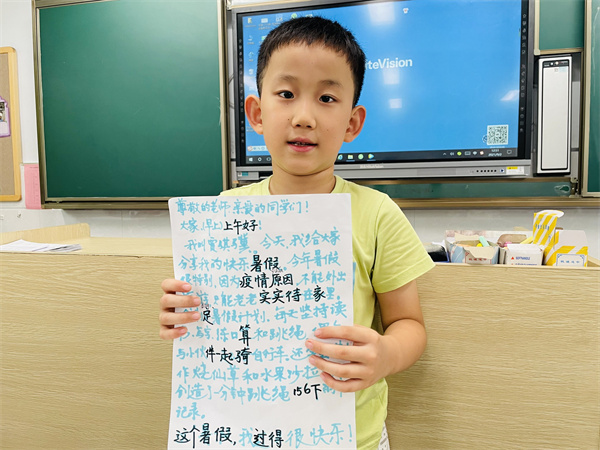 teVision
尊敬的老师,亲爱的同学们!
大家(早)上午好!
我叫
今天,我给大家
分享我的快乐暑假。今年暑假
很特别,因为疫情原因,不能外出
只能老老实实待在家里。
足暑假计划。每天坚持读
口算和跳绳
与小伙伴一起骑自行车。还
作烧仙草和水果沙拉
创造了一分钟跳绳156下的
记录。
这个暑假,我过得很快乐!